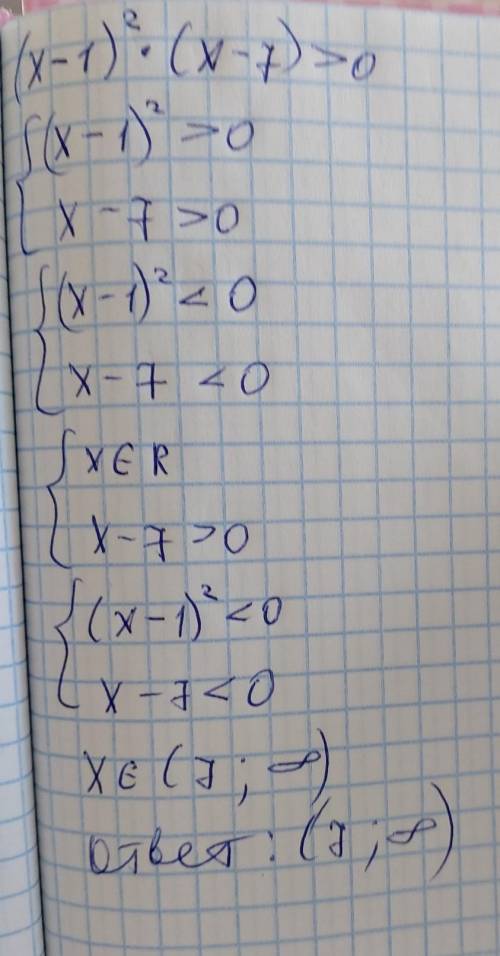 (x-1)² · (x-7) > 0
{ (x-1)² > 0
x - 7 > 0
{ (x-1)² < 0
x - 7 < 0
{ x ∈ R
x - 7 > 0
{ (x-1)² < 0
x - 7 < 0
x ∈ (7 ; ∞)
ответ : (7 ; ∞)